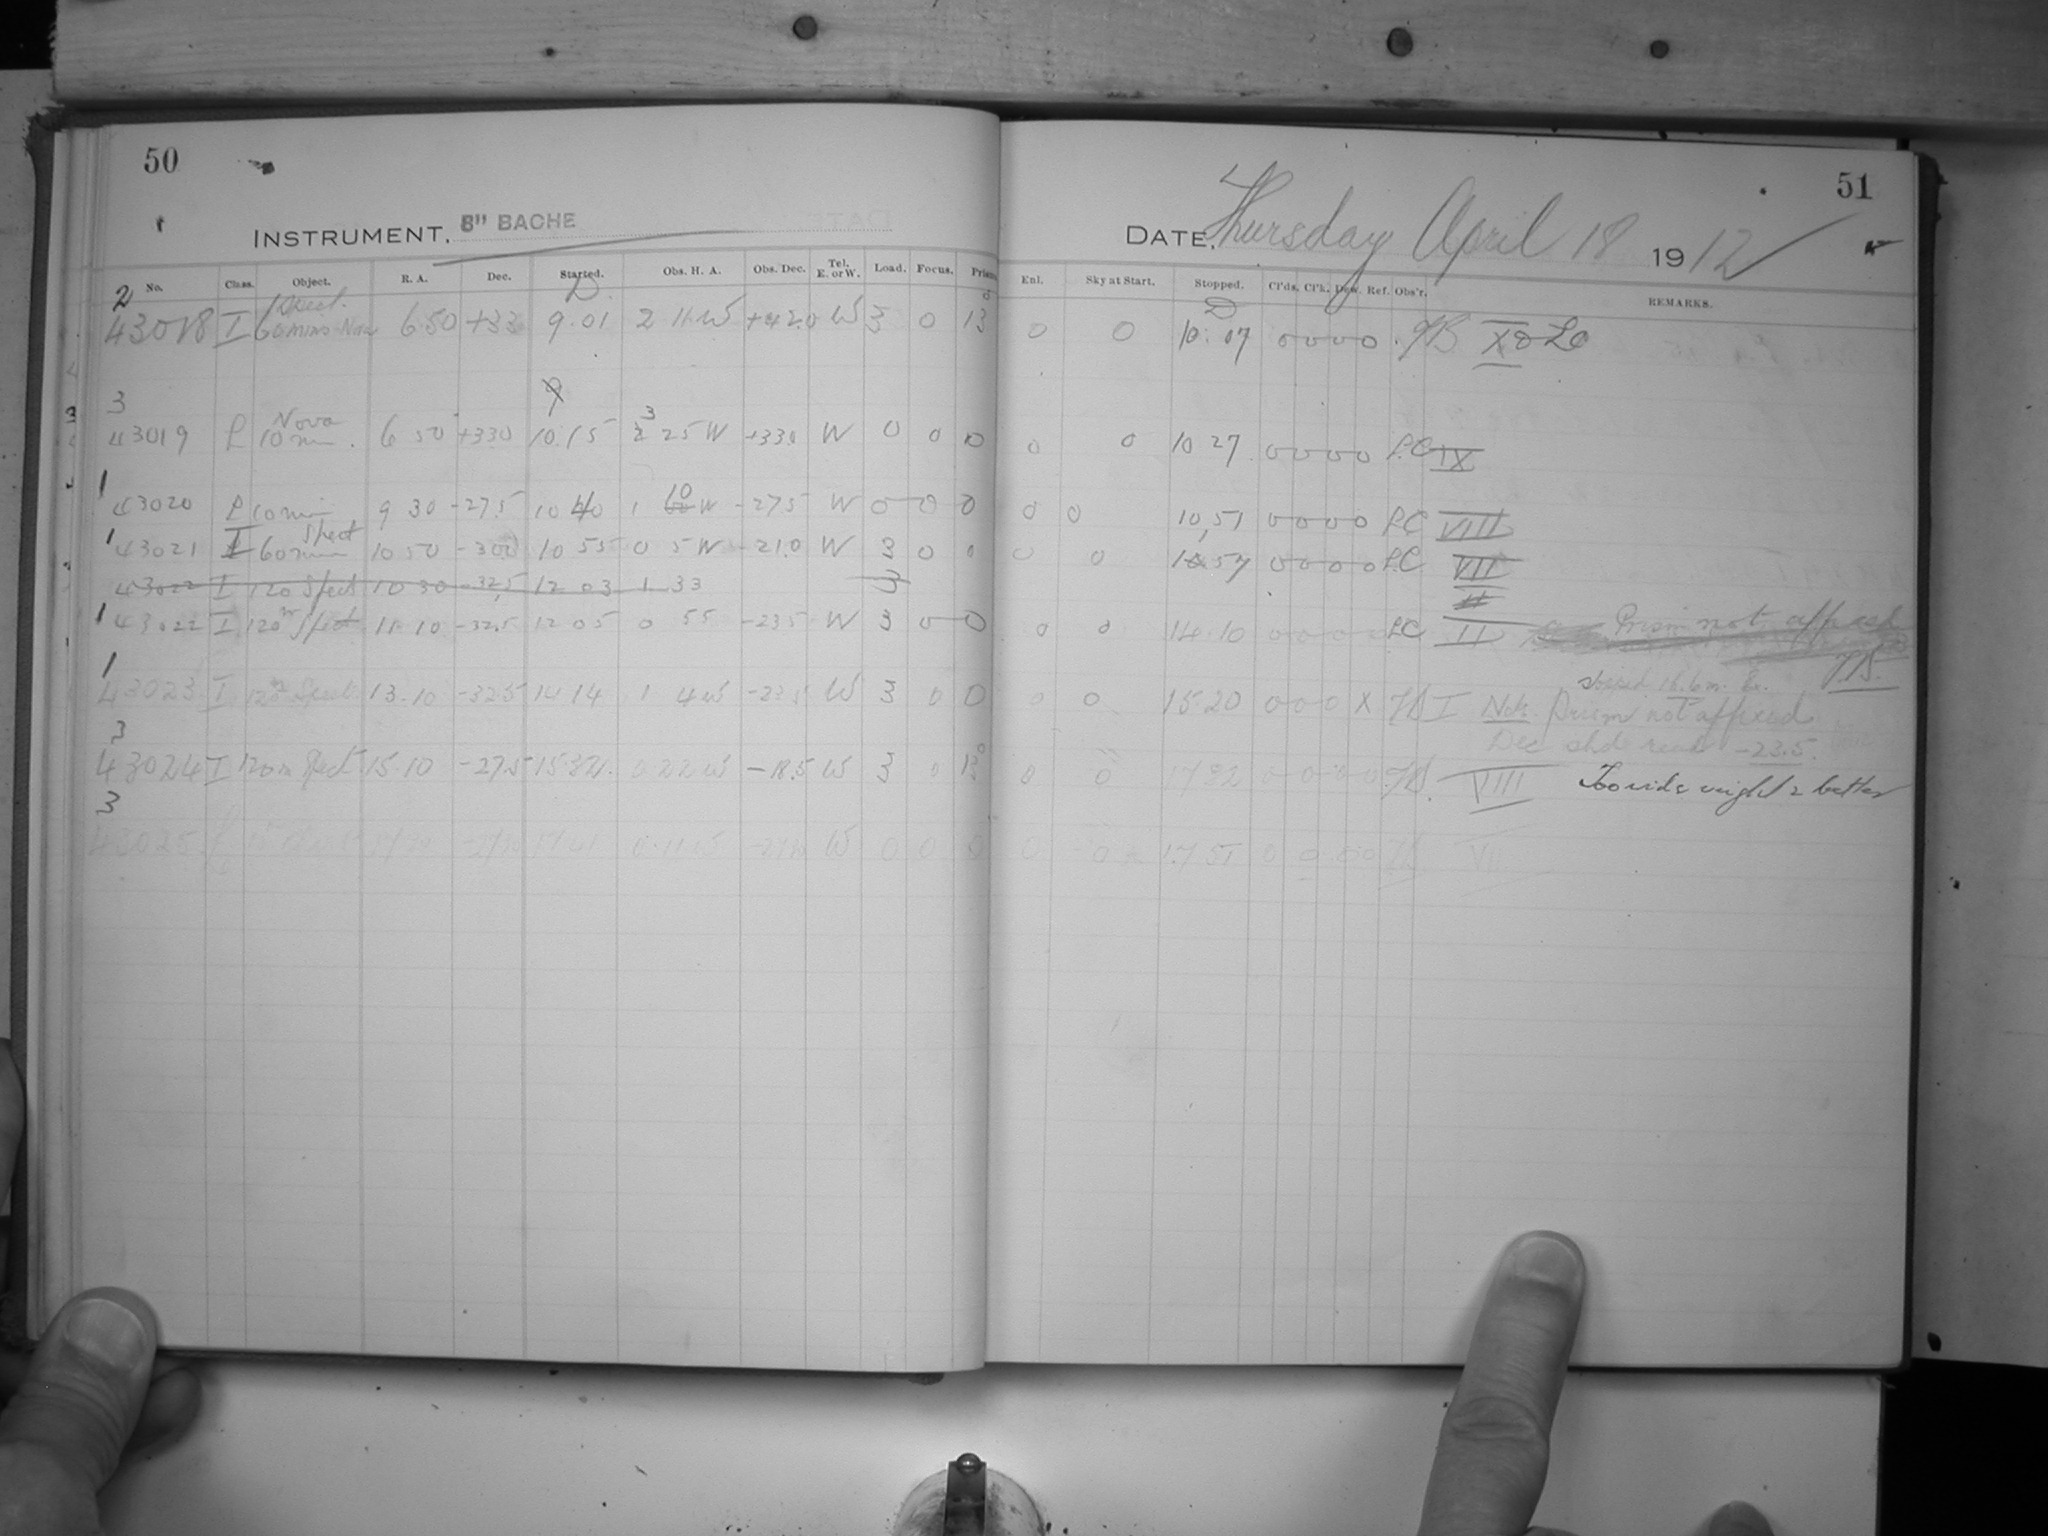 50
INSTRUMENT. 8" BACHE
No. Class. Object. R. A. Dec. Started. Obs. H. A. Obs. Dec. Tel. E. or W. Load. Focus. Prism
2
Spect. D.
43018 I 60 mins Nova 6.50 +33 9.01 2 11 W +42.0 W 3 0 13
3
Nova
43019 L 10 min. 6 50 +330 10.15 3 25 W +330 W 0 0 0
1
43020 L 10 min 9 30 -27.5 10 40 1 10 W -275 W 0 0 0
1 43021 I 60 min Spect 10 50 -300 10 55 0 5 W -21.0 W 3 0 0
43022 I 120 Spect 10 30 -32.5 12 03 1 33 3
1 43022 I 120 m Spect 11 10 -32.5 12 05 0 55 -235 W 3 0 0
1
43023 I 120 m Spect 13.10 -32.5 14 14 1 4 W -23.5 W 3 0 0
3
43024 I 120 m Spect 15.10 -27.5 15.32 0 22 W -18.5 W 3 0 13
3
43025 W 0 0 0
51
DATE. Thursday April 18 1912
Enl. Sky at Start. Stopped. Cl'ds. Cl'k. Dew. Ref. Obs'r. REMARKS.
D
0 0 10.07 0 0 0 0
0 0 10 27 0 0 0 0 LC IX
0 0 10,51 0 0 0 0 LC VIII
0 0 57 0 0 0 0 LC VII
0 0 14.10 0 0 0 LC II Prism not affixed
0 0 15.20 0 0 0 X I Note Prism not affixed
Dec -23.5
0 0 17 32 0 0 0 0 VIII Too wide weight 2 better
0 0 17 51 0 0 0 0 VII